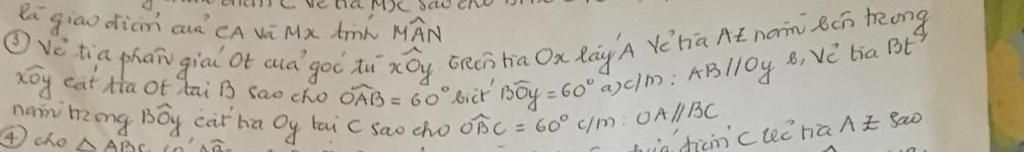 là giao điểm của CA và Mx tính MÂN
③ Vẽ tia phân giác Ot của góc tù xÔy trên tia Ox lấy A Vẽ tia Az nằm bên trong
xÔy cắt tia Ot tại B sao cho OÂB = 60° biết BÔy = 60° a, c/m : AB//Oy b, Vẽ tia Bt'
nằm trong BÔy cắt tia Oy tại C sao cho OB̂C = 60° c/m : OA//BC
④ cho △ ABC có AB̂ điểm C vẽ tia Az sao